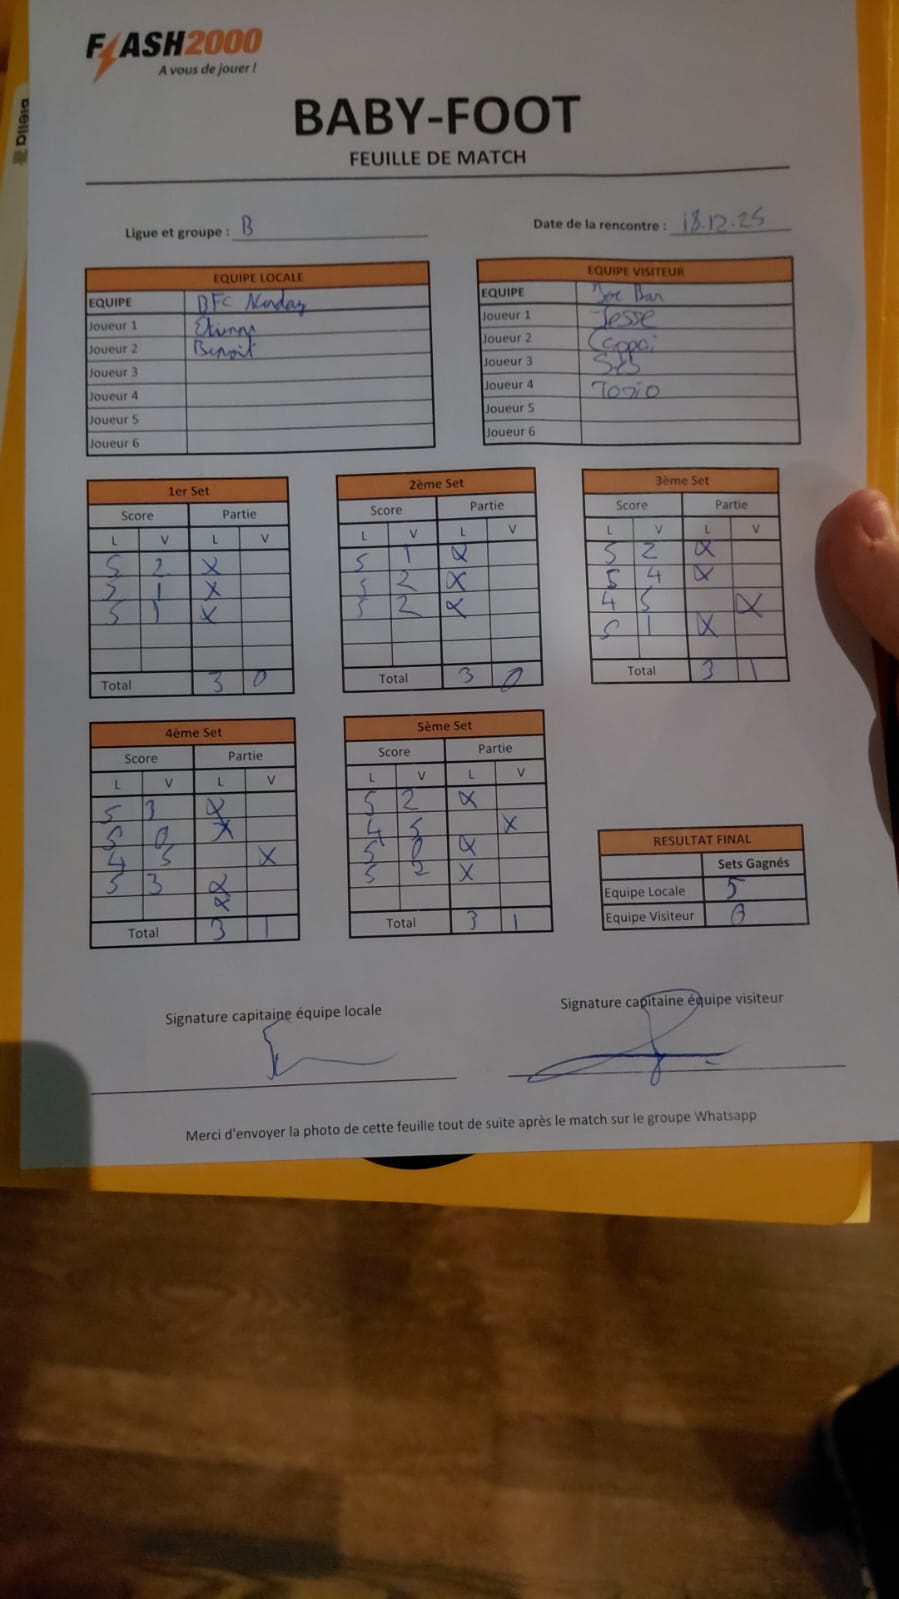 FLASH2000
A vous de jouer !
biella
BABY-FOOT
FEUILLE DE MATCH
Ligue et groupe : B
Date de la rencontre : 18.12.25
EQUIPE LOCALE
EQUIPE BFC Nendaz
Joueur 1 Etienne
Joueur 2 Benoit
Joueur 3
Joueur 4
Joueur 5
Joueur 6
EQUIPE VISITEUR
EQUIPE Bar
Joueur 1 Jesse
Joueur 2
Joueur 3
Joueur 4
Joueur 5
Joueur 6
1er Set
Score Partie
L V L V
5 2 X
5 1 X
5 1 X
Total 3 0
2ème Set
Score Partie
L V L V
5 1 X
5 2 X
5 2 X
Total 3 0
3ème Set
Score Partie
L V L V
5 2 X
5 4 X
4 5 X
5 1 X
Total 3 1
4ème Set
Score Partie
L V L V
5 3 X
5 0 X
4 5 X
5 3 X
X
Total 3 1
5ème Set
Score Partie
L V L V
5 2 X
4 5 X
5 0 X
5 2 X
Total 3 1
RESULTAT FINAL
Sets Gagnés
Equipe Locale 5
Equipe Visiteur 0
Signature capitaine équipe locale
Signature capitaine équipe visiteur
Merci d'envoyer la photo de cette feuille tout de suite après le match sur le groupe Whatsapp